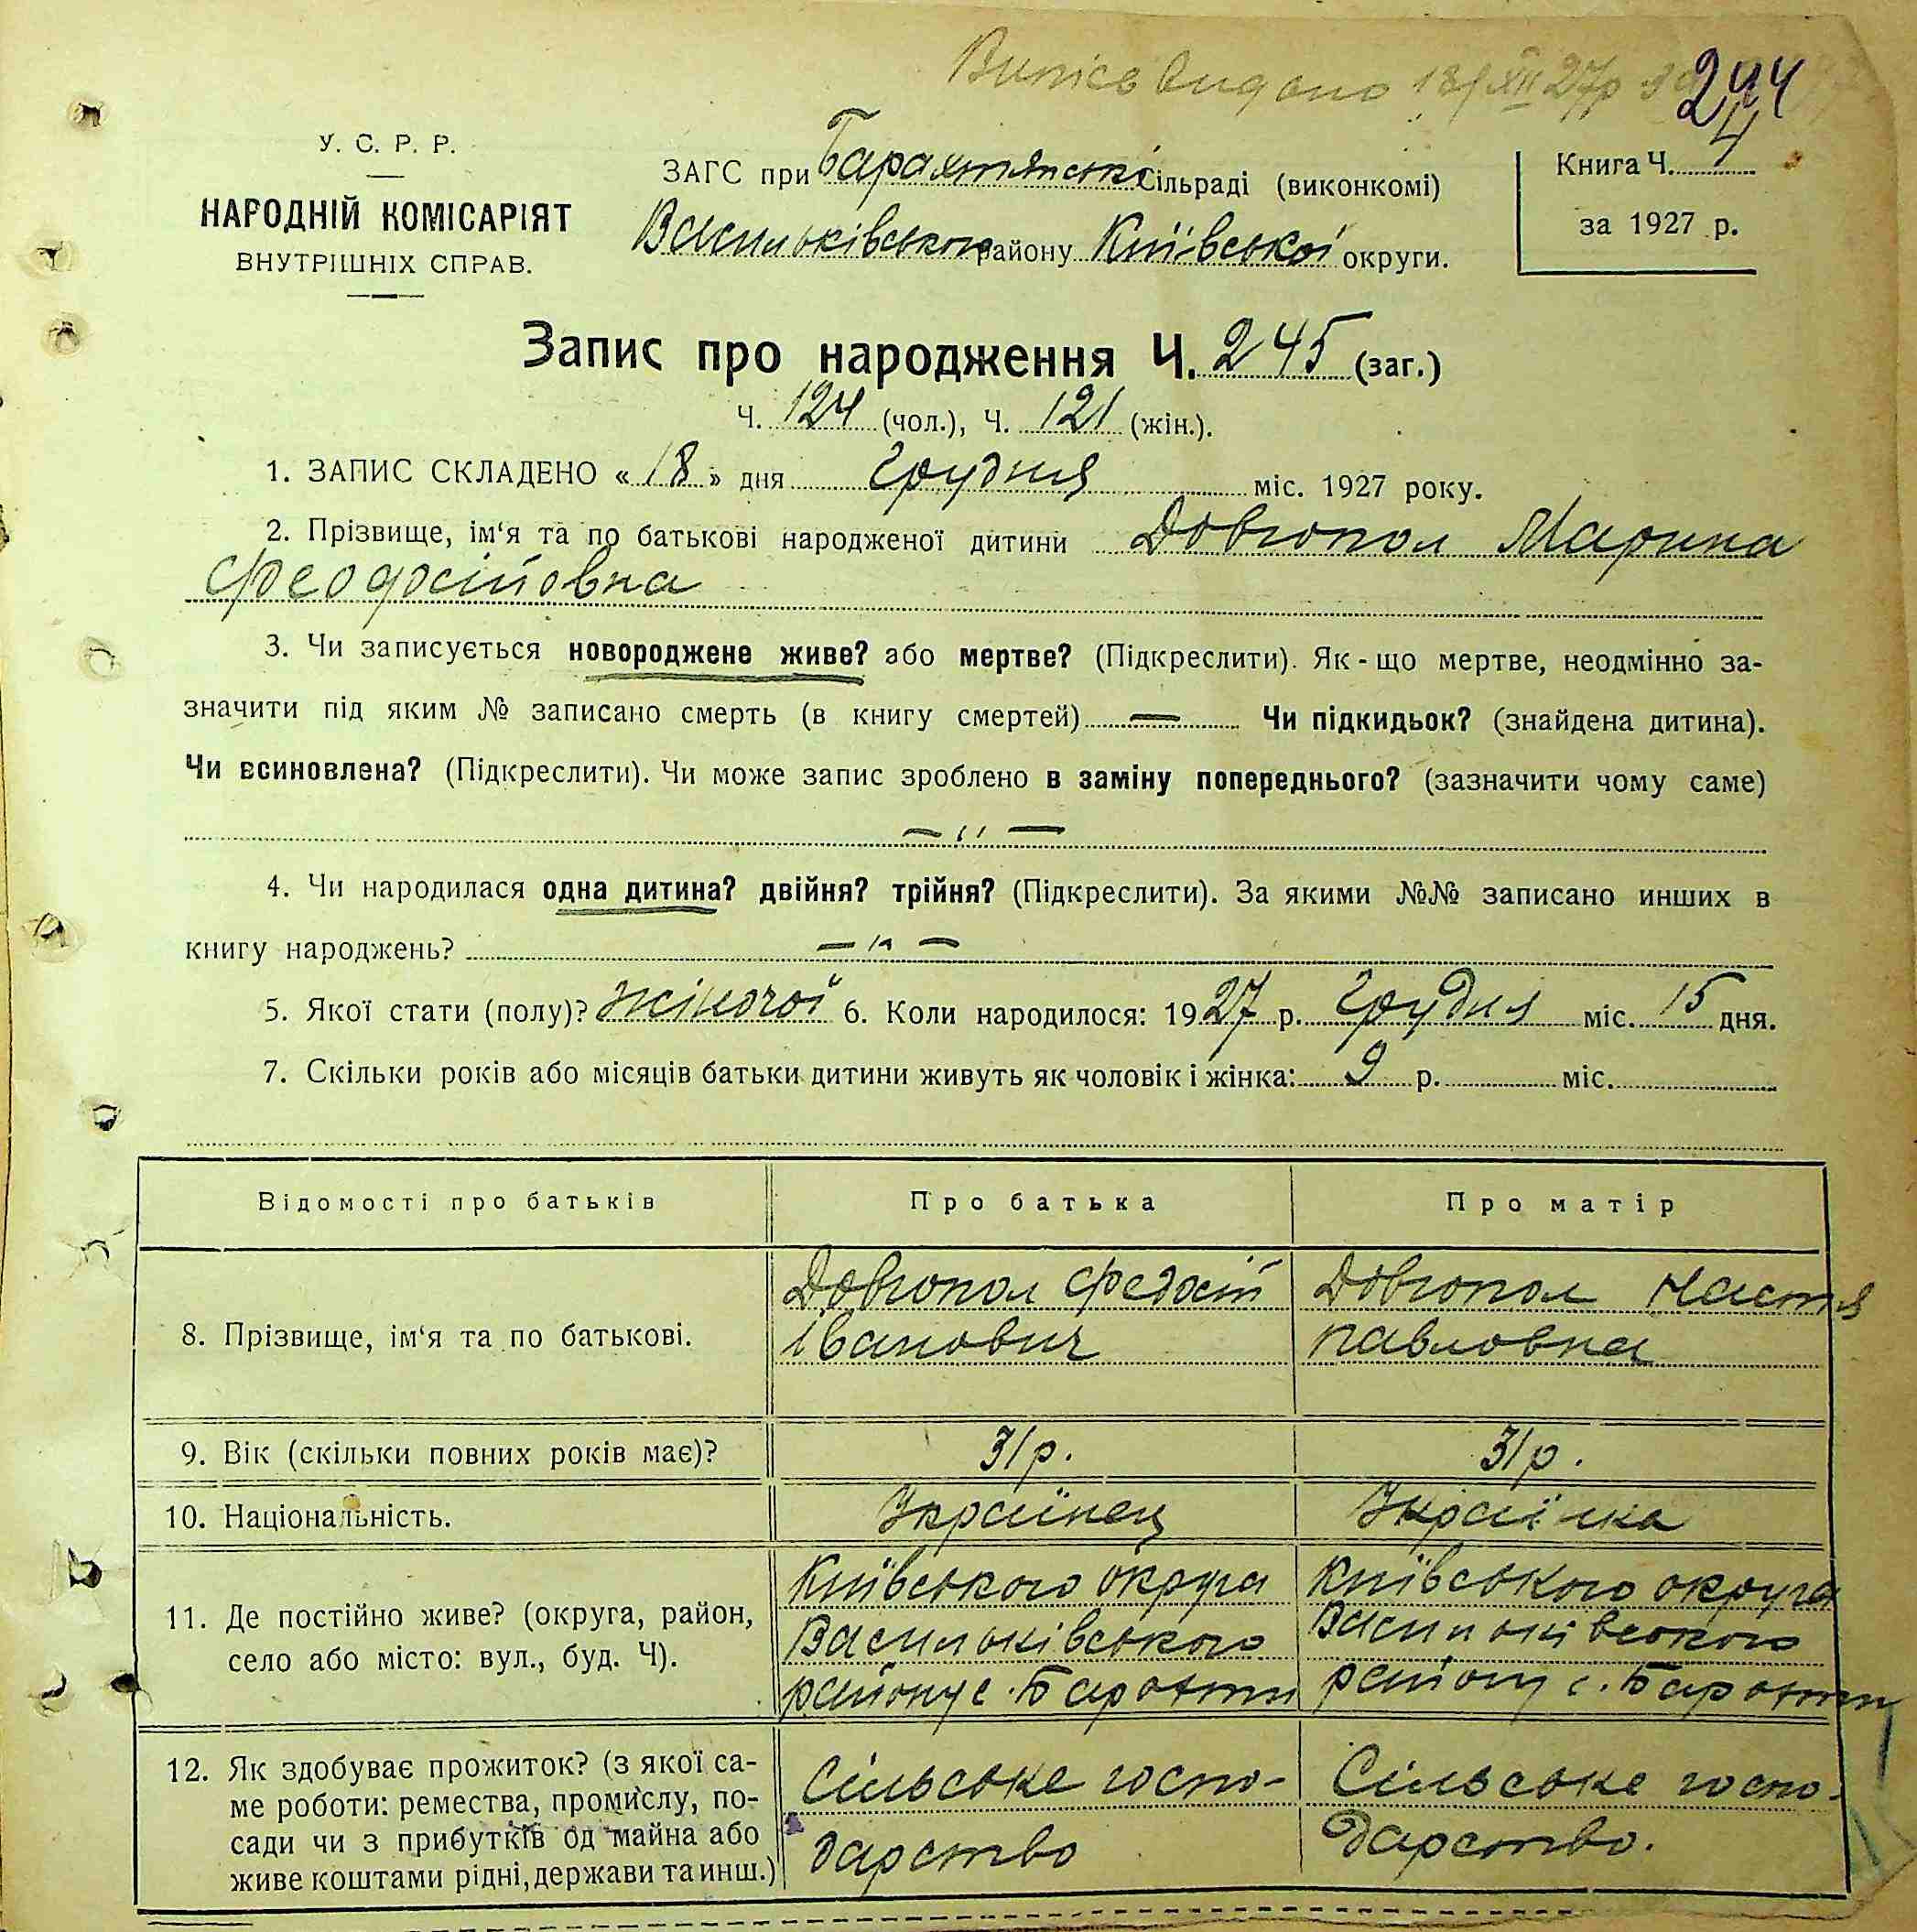 Випись видано 18/XII 27р
244
У. С. Р. Р.
НАРОДНІЙ КОМІСАРІЯТ
ВНУТРІШНІХ СПРАВ.
ЗАГС при Барахтянські Сільраді (виконкомі)
Васильківського району Київської округи.
Книга Ч. 4
за 1927 р.
Запис про народження Ч. 245 (заг.)
Ч. 124 (чол.), Ч. 121 (жін.).
1. ЗАПИС СКЛАДЕНО « 18 » дня грудня міс. 1927 року.
2. Прізвище, ім‘я та по батькові народженої дитини Довгопол Марина
Феодосійовна
3. Чи записується новороджене живе? або мертве? (Підкреслити). Як-що мертве, неодмінно за-
значити під яким № записано смерть (в книгу смертей) — Чи підкидьок? (знайдена дитина).
Чи всиновлена? (Підкреслити). Чи може запис зроблено в заміну попереднього? (зазначити чому саме)
— „ —
4. Чи народилася одна дитина? двійня? трійня? (Підкреслити). За якими №№ записано инших в
книгу народжень? — „ —
5. Якої стати (полу)? жіночої 6. Коли народилося: 1927 р. Грудня міс. 15 дня.
7. Скільки років або місяців батьки дитини живуть як чоловік і жінка: 9 р. міс.
Відомості про батьків Про батька Про матір
8. Прізвище, ім‘я та по батькові.
Довгопол Федосій
Іванович
Довгопол Настя
Павловна
9. Вік (скільки повних років має)? 31 р. 31 р.
10. Національність. Українец Українка
11. Де постійно живе? (округа, район,
село або місто: вул., буд. Ч).
Київського округа
Васильківського
району с. Барахти
Київського округа
Васильківського
району с. Барахти
12. Як здобуває прожиток? (з якої са-
ме роботи: ремества, промислу, по-
сади чи з прибутків од майна або
живе коштами рідні, держави та инш.)
Сільське госпо-
дарство
Сільське госпо-
дарство.